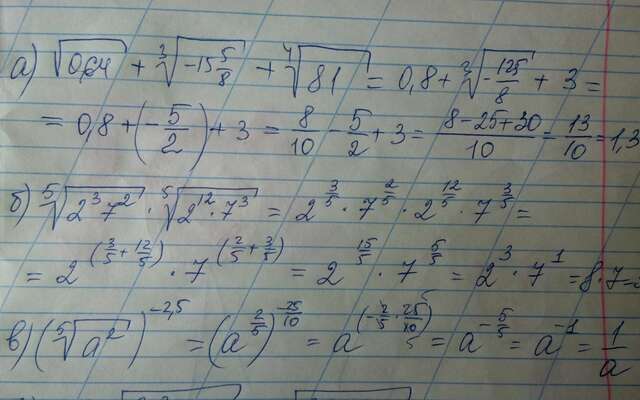 а) √0,64 + ³√-15 5/8 + ⁴√81 = 0,8 + ³√-125/8 + 3 =
= 0,8 + (-5/2) + 3 = 8/10 - 5/2 + 3 = (8-25+30)/10 = 13/10 = 1,3
б) ⁵√(2³7²) · ⁵√(2¹²·7³) = 2^(3/5) · 7^(2/5) · 2^(12/5) · 7^(3/5) =
= 2^(3/5 + 12/5) · 7^(2/5 + 3/5) = 2^(15/5) · 7^(5/5) = 2³ · 7¹ = 8·7=
в) (⁵√a²)^(-2,5) = (a^(2/5))^(-25/10) = a^(-2/5 · 25/10) = a^(-5/5) = a^(-1) = 1/a